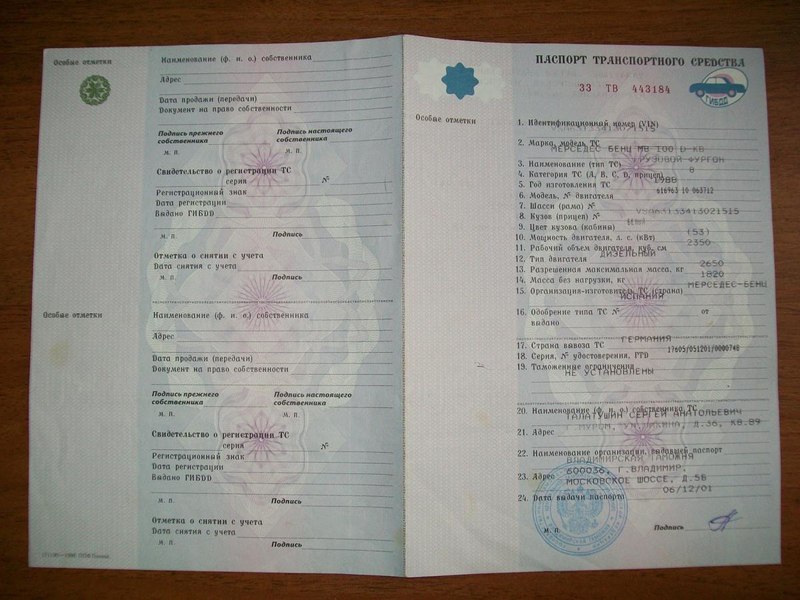 Особые отметки
Наименование (ф. и. о.) собственника
Адрес
Дата продажи (передачи)
Документ на право собственности
Подпись прежнего собственника
Подпись настоящего собственника
м. п.
м. п.
Свидетельство о регистрации ТС
серия №
Регистрационный знак
Дата регистрации
Выдано ГИБДД
м. п.
Подпись
Отметка о снятии с учета
Дата снятия с учета
м. п.
Подпись
Особые отметки
Наименование (ф. и. о.) собственника
Адрес
Дата продажи (передачи)
Документ на право собственности
Подпись прежнего собственника
Подпись настоящего собственника
м. п.
м. п.
Свидетельство о регистрации ТС
серия №
Регистрационный знак
Дата регистрации
Выдано ГИБДД
м. п.
Подпись
Отметка о снятии с учета
Дата снятия с учета
м. п.
Подпись
ПАСПОРТ ТРАНСПОРТНОГО СРЕДСТВА
33 ТВ 443184
ГИБДД
Особые отметки
1. Идентификационный номер (VIN)
2. Марка, модель ТС
МЕРСЕДЕС БЕНЦ MB 100 D-KB
3. Наименование (тип ТС) ГРУЗОВОЙ ФУРГОН
4. Категория ТС (A, B, C, D, прицеп) B
5. Год изготовления ТС 1988
6. Модель, № двигателя 616963 10 063712
7. Шасси (рама) №
8. Кузов (прицеп) № VSA63133413021515
9. Цвет кузова (кабины)
10. Мощность двигателя, л. с. (кВт) (53)
11. Рабочий объем двигателя, куб. см 2350
12. Тип двигателя ДИЗЕЛЬНЫЙ
13. Разрешенная максимальная масса, кг 2650
14. Масса без нагрузки, кг 1820
15. Организация-изготовитель ТС (страна) МЕРСЕДЕС-БЕНЦ
ИСПАНИЯ
16. Одобрение типа ТС № от
выдано
17. Страна вывоза ТС ГЕРМАНИЯ
18. Серия, № удостоверения, PTD 17605/051201/0000748
19. Таможенные ограничения
НЕ УСТАНОВЛЕНЫ
20. Наименование (ф. и. о.) собственника ТС
ТАЛАТУШИН СЕРГЕЙ АНАТОЛЬЕВИЧ
21. Адрес МУРОМ, Д.36, КВ.89
22. Наименование организации, выдавшей паспорт
ВЛАДИМИРСКАЯ ТАМОЖНЯ
23. Адрес 600036, Г.ВЛАДИМИР,
МОСКОВСКОЕ ШОССЕ, Д.5Б
24. Дата выдачи паспорта 06/12/01
м. п.
Подпись